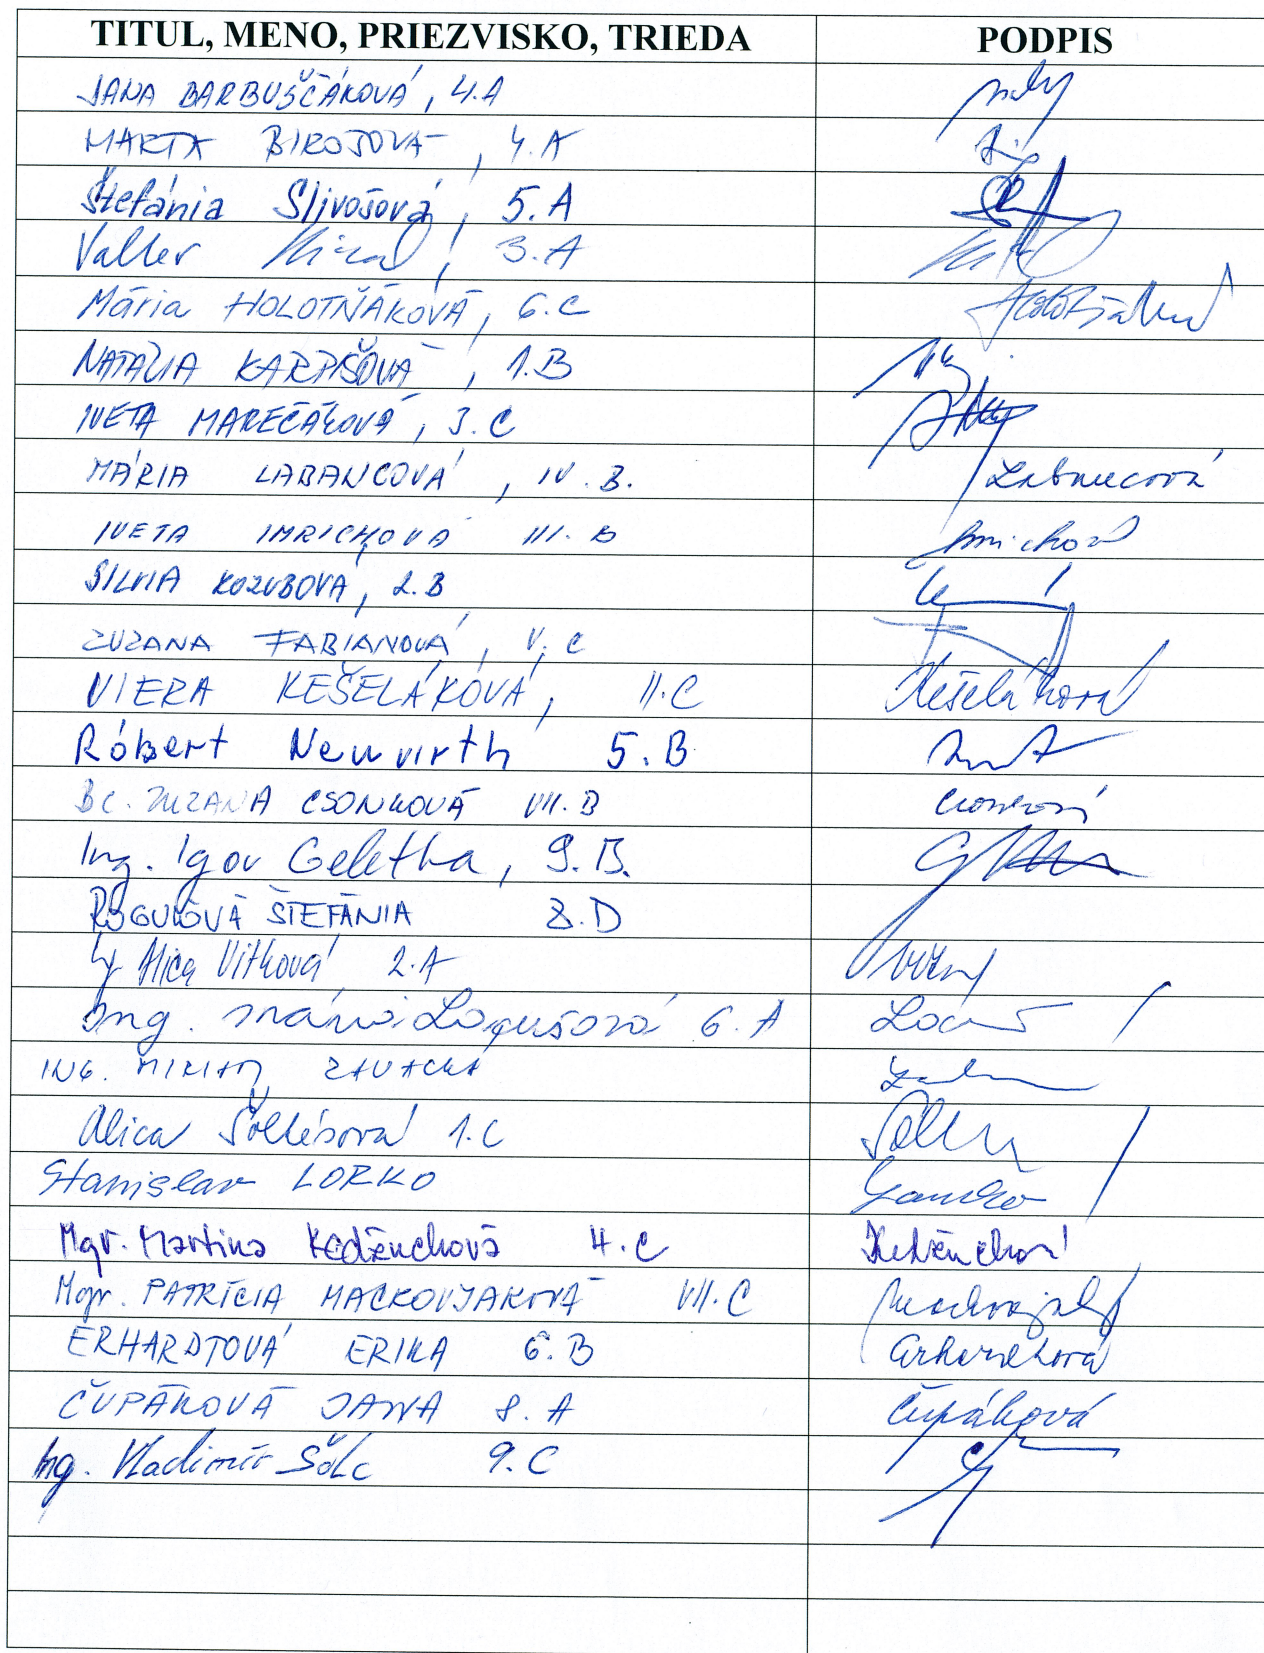 TITUL, MENO, PRIEZVISKO, TRIEDA PODPIS
JANA BARBUŠČÁKOVÁ, 4.A
MARTA BIROŠOVÁ, 4.A
Štefánia Slivošová, 5.A
Valter 3.A
Mária HOLOTŇÁKOVÁ, 6.C
NATÁLIA KARPIŠOVÁ, 1.B
IVETA MAREČÁKOVÁ, 3.C
MÁRIA LABANCOVÁ, IV.B. Labancová
IVETA IMRICHOVÁ III.B Imrichová
SILVIA KOZUBOVÁ, 2.B
ZUZANA FABIANOVÁ, V.C
VIERA KEŠELÁKOVÁ, II.C Kešeláková
Róbert Neuvirth 5.B
BC. ZUZANA CSONKOVÁ VII.B Csonková
Ing. Igor Geletka, 9.B.
ROGUĽOVÁ ŠTEFÁNIA 8.D
Alica Vitková 2.A
Ing. Mária Logušová 6.A
ING. MIRIAM ZAVACKÁ
Alica Šoltésová 1.C
Stanislav LORKO
Mgr. Martina Kedženchová 4.C
Mgr. PATRÍCIA MACKOVJAKOVÁ VII.C
ERHARDTOVÁ ERIKA 6.B Erhardtová
ČUPÁKOVÁ JANA 8.A Čupáková
Ing. Vladimír Šolc 9.C